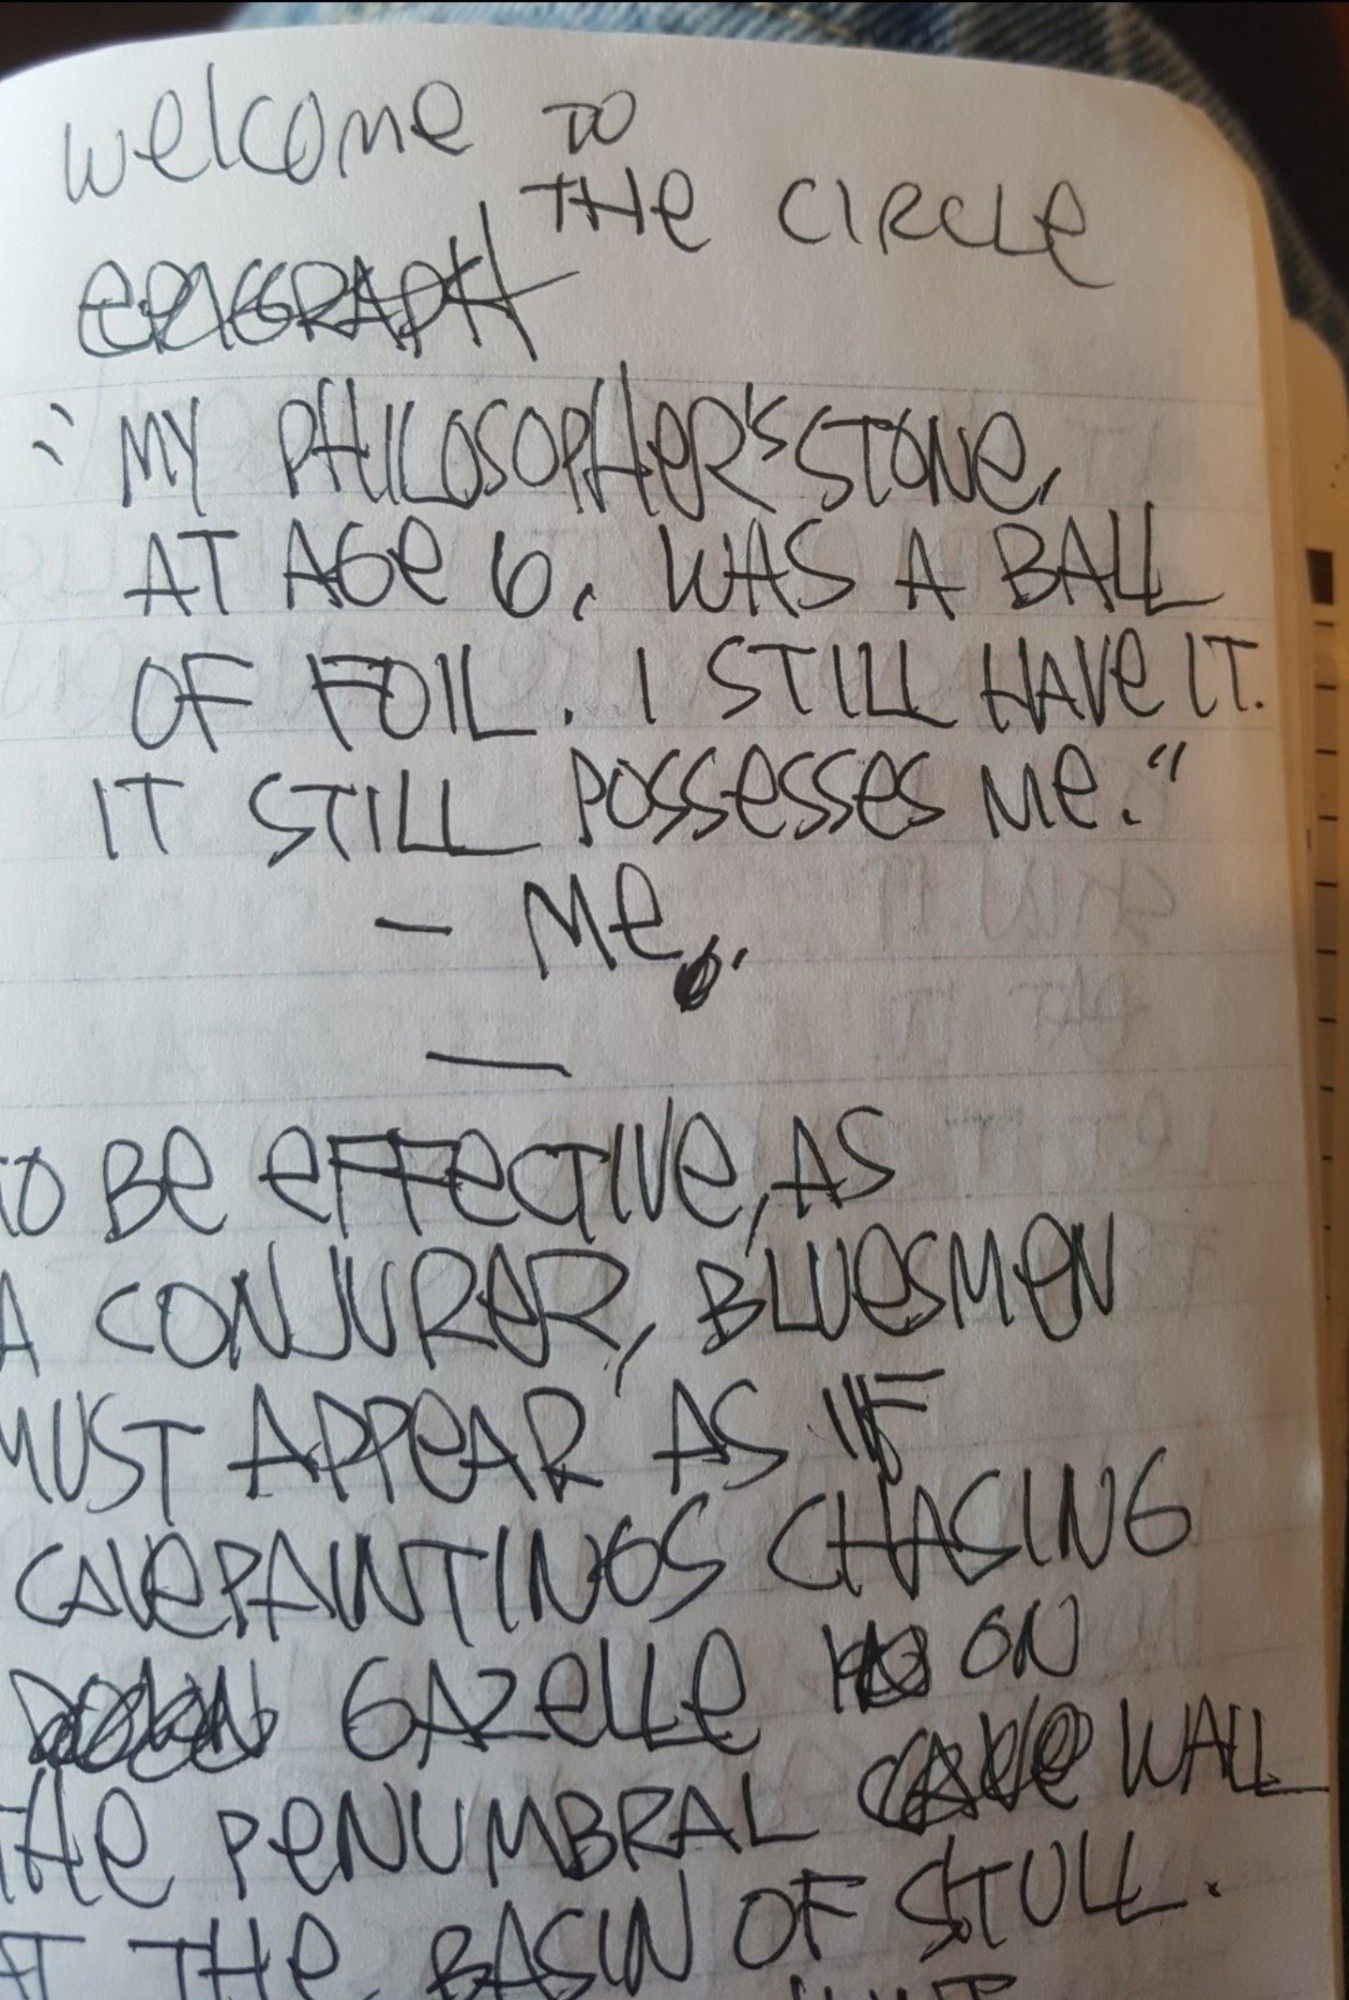 Welcome TO
THE CIRCLE
EPIGRAPH
"MY PHILOSOPHER'S STONE,
AT AGE 6, WAS A BALL
OF FOIL. I STILL HAVE IT.
IT STILL POSSESSES ME."
— ME
TO BE EFFECTIVE, AS
A CONJURER, BLUESMEN
MUST APPEAR AS IF
CAVEPAINTINGS CHASING
GAZELLE ON
THE PENUMBRAL CAVE WALL
AT THE BASIN OF STULL.